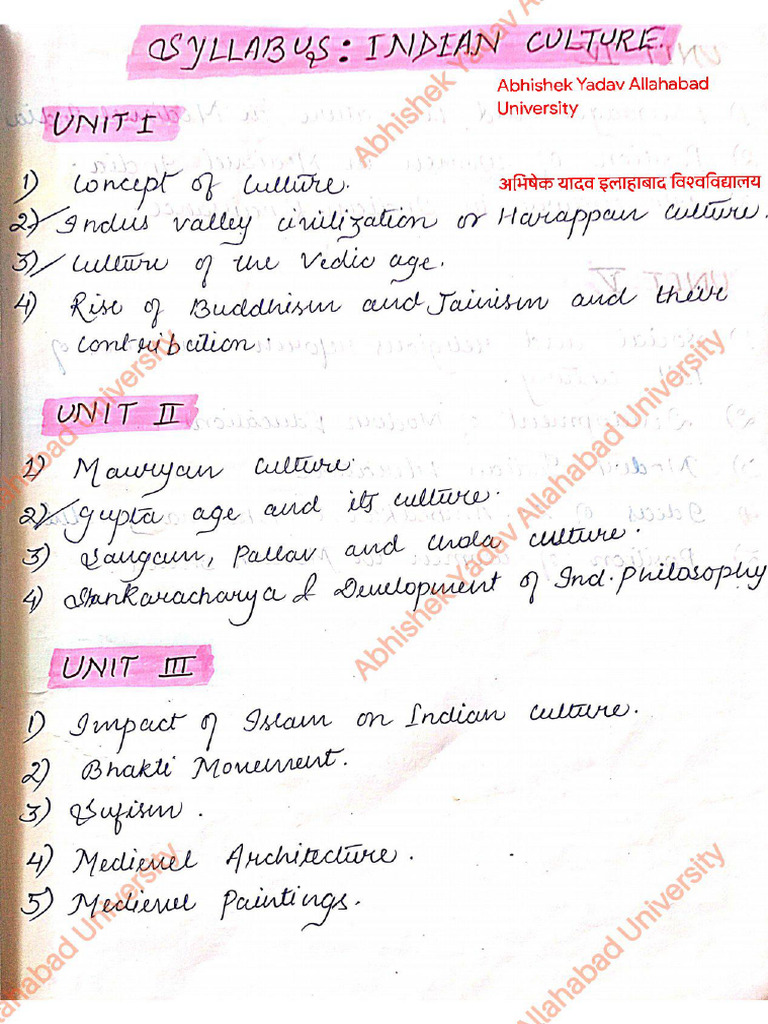 SYLLABUS: INDIAN CULTURE.
Abhishek Yadav Allahabad
University
UNIT I
अभिषेक यादव इलाहाबाद विश्वविद्यालय
1) Concept of Culture.
2) Indus valley civilization or Harappan culture.
3) Culture of the Vedic age.
4) Rise of Buddhism and Jainism and their
contribution.
UNIT II
1) Mauryan culture.
2) Gupta age and its culture.
3) Sangam, Pallav and Chola culture.
4) Shankaracharya & Development of Ind. Philosophy
UNIT III
1) Impact of Islam on Indian culture.
2) Bhakti Movement.
3) Sufism.
4) Medievel Architecture.
5) Medievel Paintings.
Abhishek Yadav Allahabad University